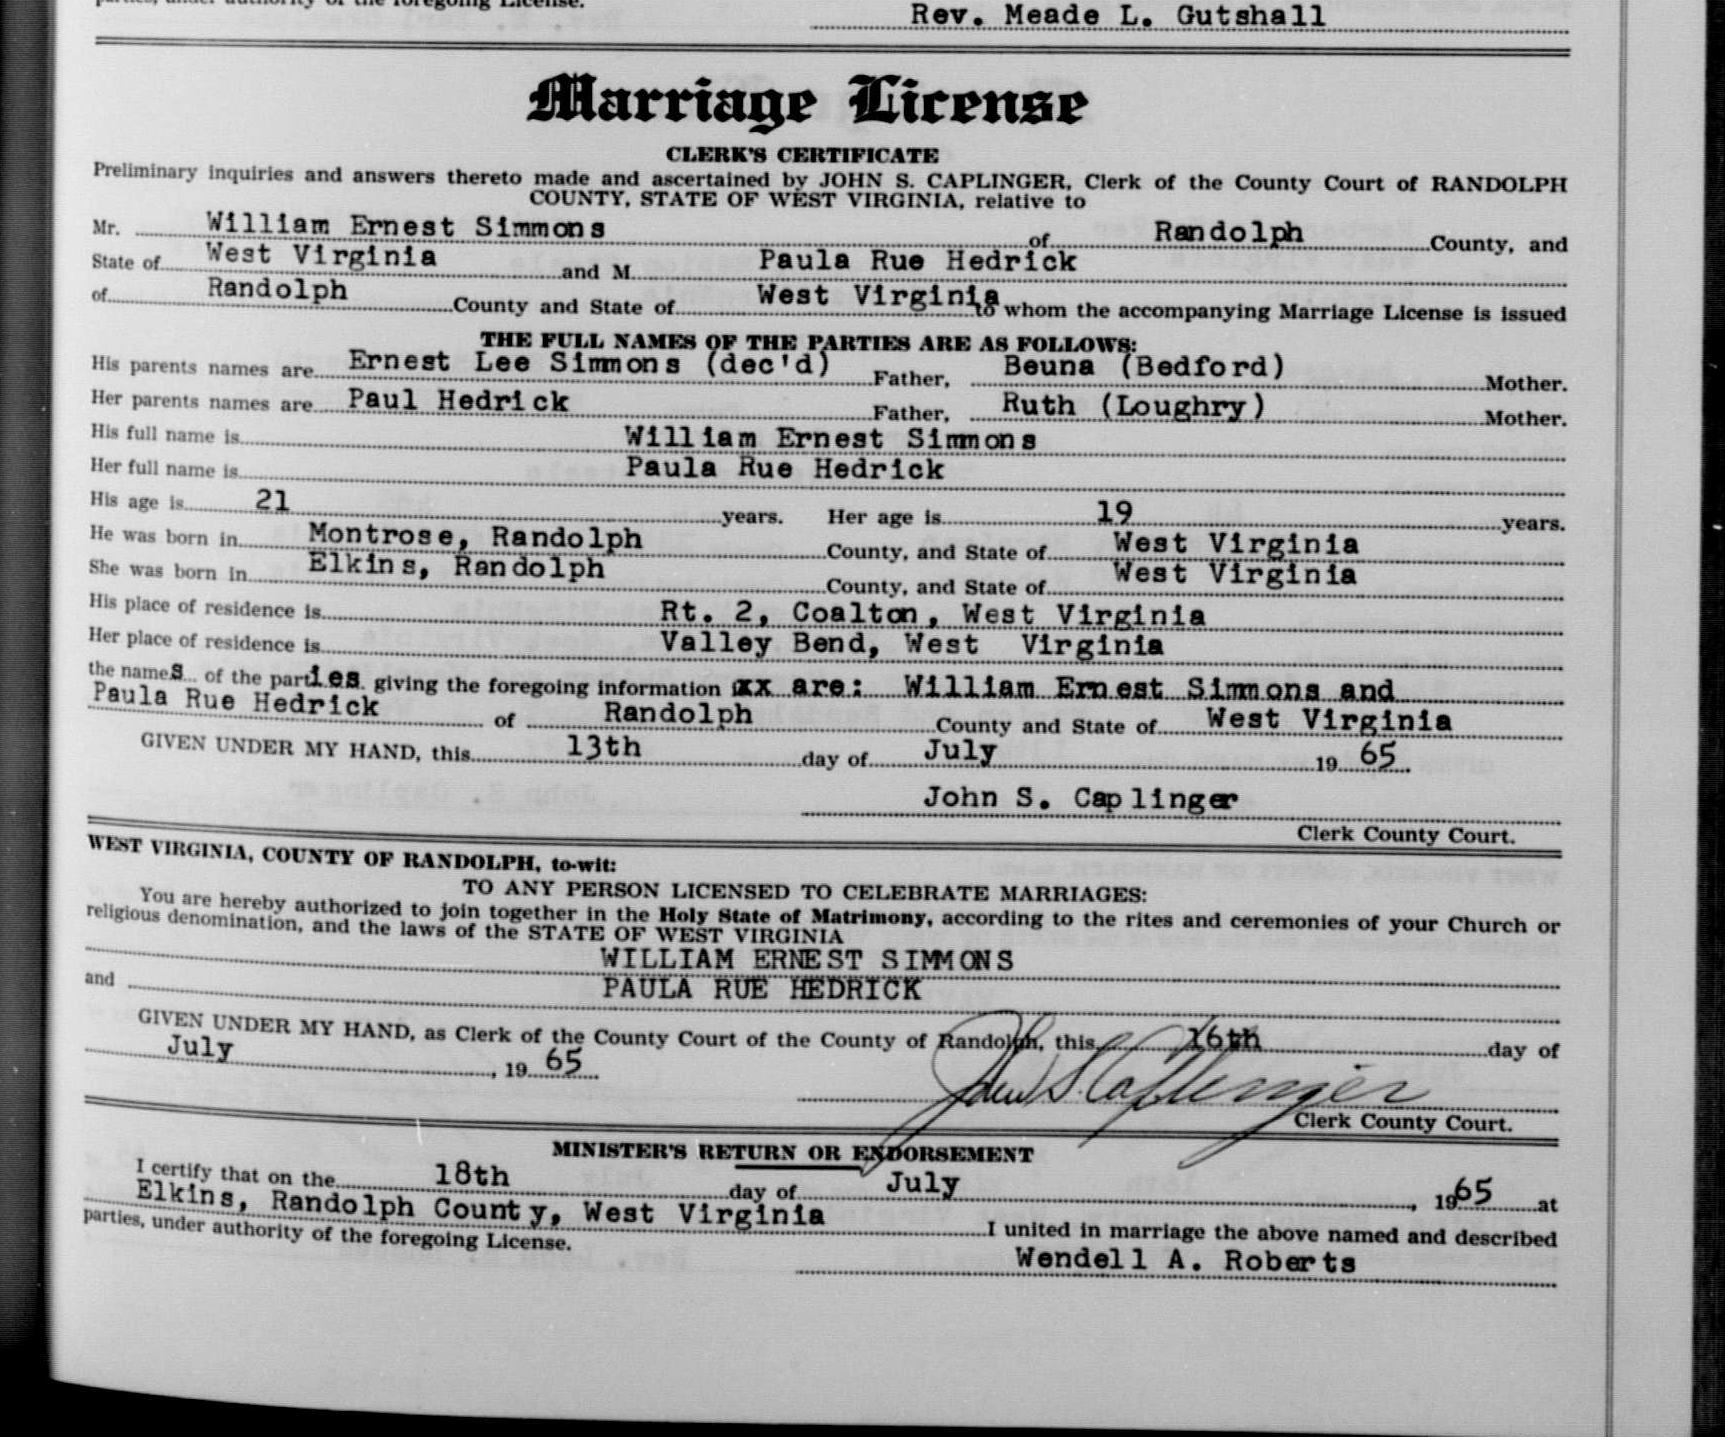 parties, under authority of the foregoing License.
Rev. Meade L. Gutshall
Marriage License
CLERK'S CERTIFICATE
Preliminary inquiries and answers thereto made and ascertained by JOHN S. CAPLINGER, Clerk of the County Court of RANDOLPH
COUNTY, STATE OF WEST VIRGINIA, relative to
Mr. William Ernest Simmons of Randolph County, and
State of West Virginia and M Paula Rue Hedrick
of Randolph County and State of West Virginia to whom the accompanying Marriage License is issued
THE FULL NAMES OF THE PARTIES ARE AS FOLLOWS:
His parents names are Ernest Lee Simmons (dec'd) Father, Beuna (Bedford) Mother.
Her parents names are Paul Hedrick Father, Ruth (Loughry) Mother.
His full name is William Ernest Simmons
Her full name is Paula Rue Hedrick
His age is 21 years. Her age is 19 years.
He was born in Montrose, Randolph County, and State of West Virginia
She was born in Elkins, Randolph County, and State of West Virginia
His place of residence is Rt. 2, Coalton, West Virginia
Her place of residence is Valley Bend, West Virginia
the names of the parties giving the foregoing information xx are: William Ernest Simmons and
Paula Rue Hedrick of Randolph County and State of West Virginia
GIVEN UNDER MY HAND, this 13th day of July 19 65
John S. Caplinger
Clerk County Court.
WEST VIRGINIA, COUNTY OF RANDOLPH, to-wit:
TO ANY PERSON LICENSED TO CELEBRATE MARRIAGES:
You are hereby authorized to join together in the Holy State of Matrimony, according to the rites and ceremonies of your Church or
religious denomination, and the laws of the STATE OF WEST VIRGINIA
WILLIAM ERNEST SIMMONS
and PAULA RUE HEDRICK
GIVEN UNDER MY HAND, as Clerk of the County Court of the County of Randolph, this 16th day of
July, 19 65
John S. Caplinger
Clerk County Court.
MINISTER'S RETURN OR ENDORSEMENT
I certify that on the 18th day of July, 1965 at
Elkins, Randolph County, West Virginia I united in marriage the above named and described
parties, under authority of the foregoing License.
Wendell A. Roberts